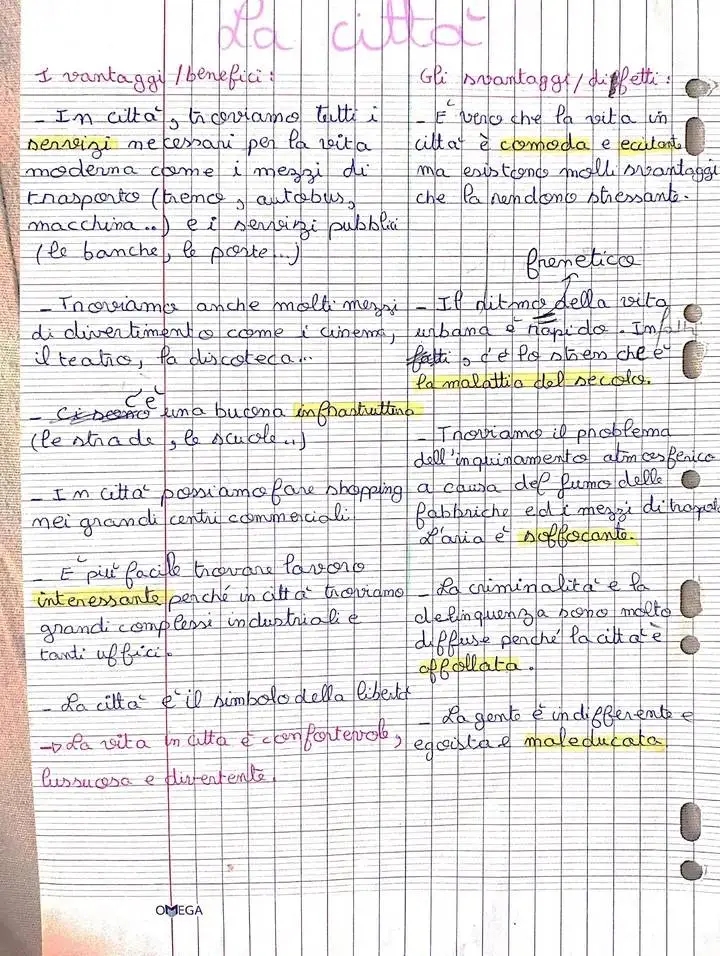 La città
I vantaggi / benefici :
- In città, troviamo tutti i
servizi necessari per la vita
moderna come i mezzi di
trasporto (treno, autobus,
macchina..) e i servizi pubblici
(le banche, le poste...)
- Troviamo anche molti mezzi
di divertimento come i cinema,
il teatro, la discoteca...
c'è
- Ci sono una buona infrastruttura
(le strade, le scuole..)
- In città possiamo fare shopping
nei grandi centri commerciali.
- È più facile trovare lavoro
interessante perché in città troviamo
grandi complessi industriali e
tanti uffici.
- La città è il simbolo della libertà
→ La vita in città è confortevole,
lussuosa e divertente.
Gli svantaggi / diffetti :
- È vero che la vita in
città è comoda e ecitante
ma esistono molti svantaggi
che la rendono stressante.
frenetico
- Il ritmo della vita
urbana è rapido. Inf
fatti, c'è lo stress che è
la malattia del secolo.
- Troviamo il problema
dell'inquinamento atmosferico
a causa del fumo delle
fabbriche ed i mezzi di
L'aria è soffocante.
- La criminalità e la
delinquenza sono molto
diffuse perché la città è
affollata.
- La gente è indifferente e
egoista e maleducata.
OMEGA